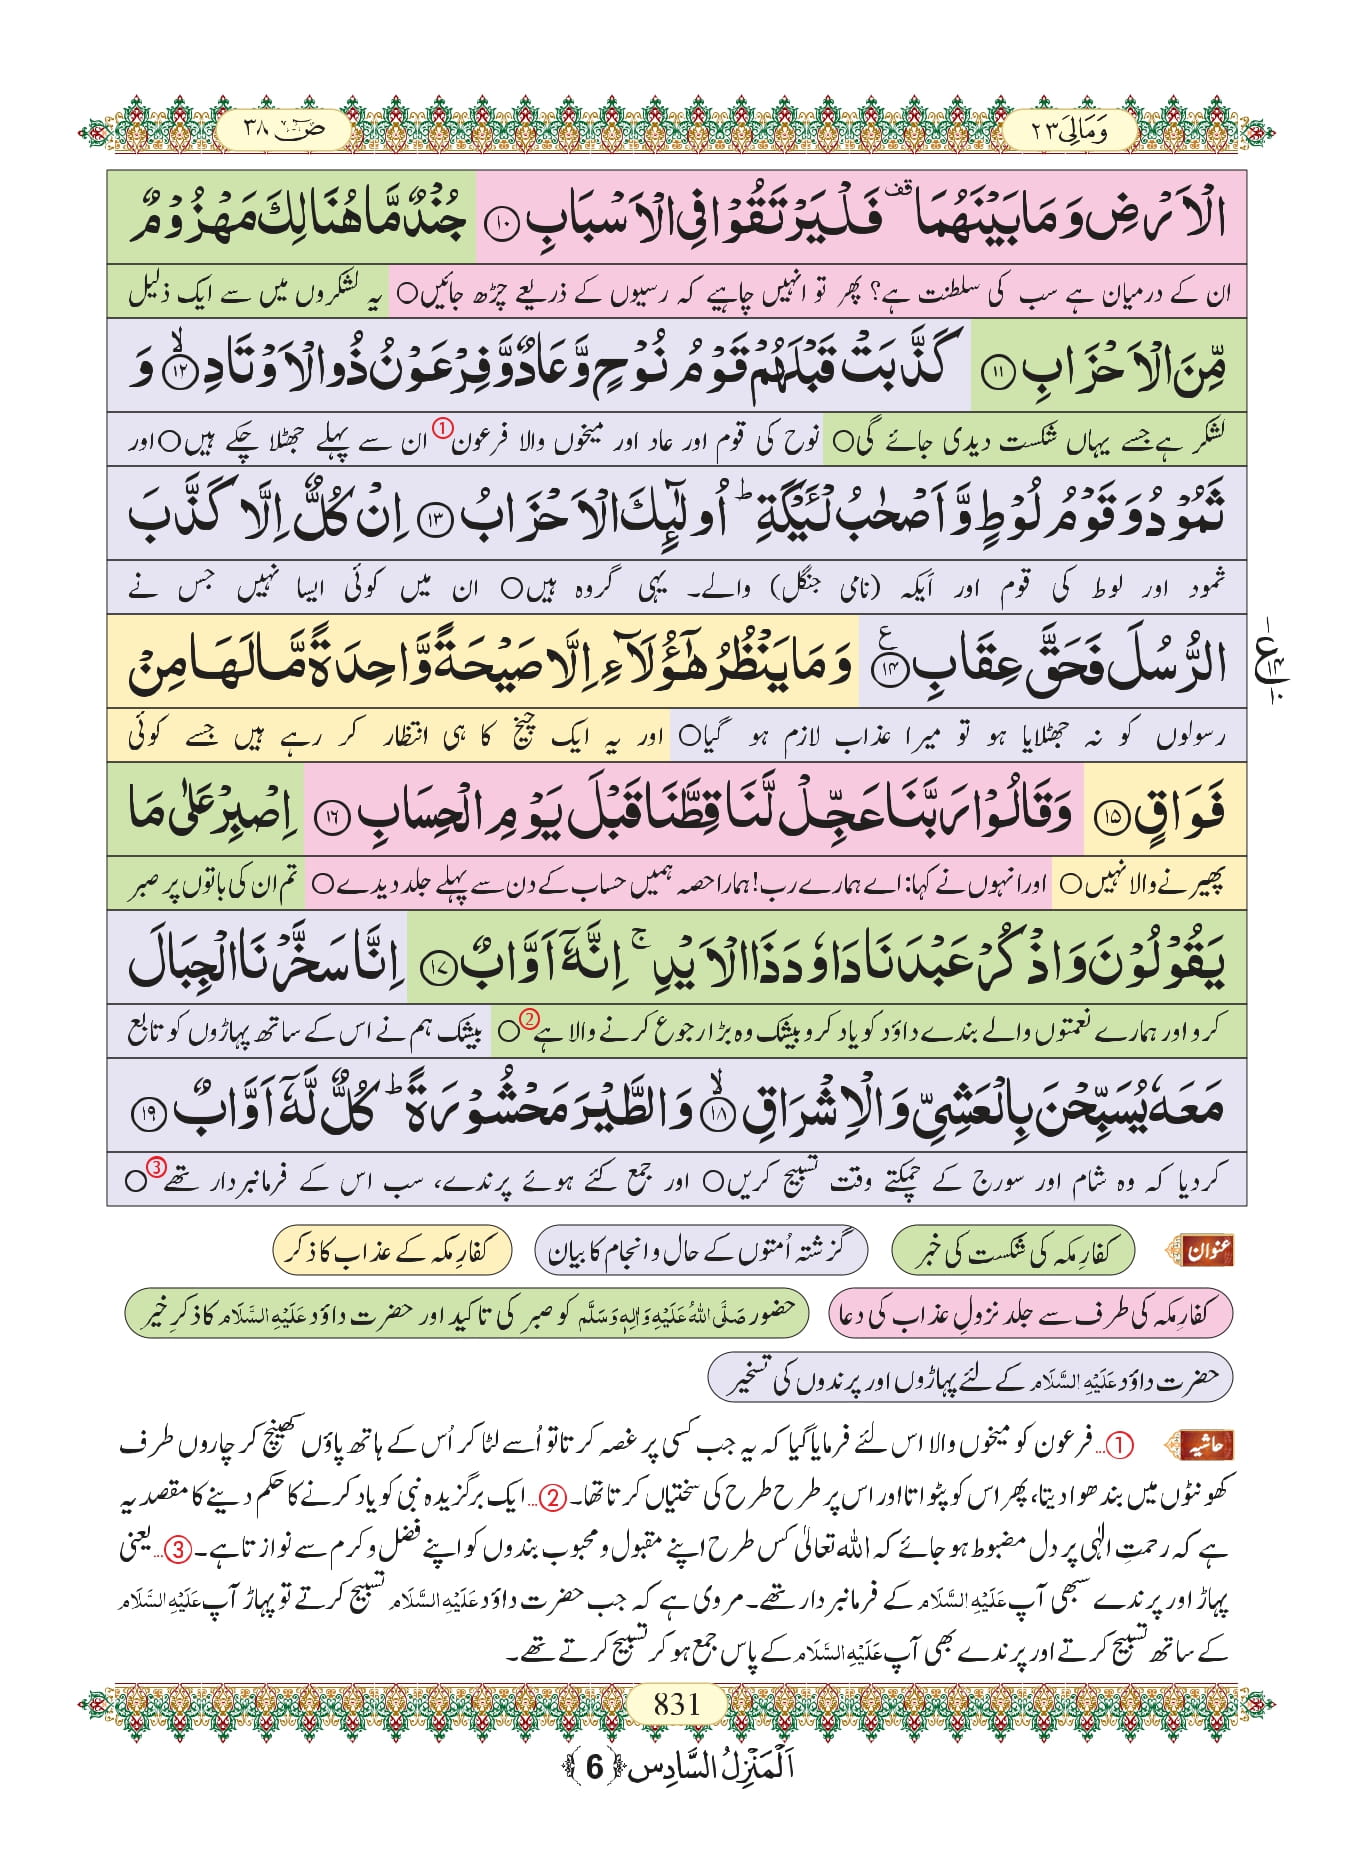 وَمَالِیَ ٢٣
صٓ ٣٨
الْاَرْضِ وَ مَا بَیْنَهُمَا ۫ فَلْیَرْتَقُوْا فِی الْاَسْبَابِ ﴿۱۰﴾ جُنْدٌ مَّا هُنَالِكَ مَهْزُوْمٌ
ان کے درمیان ہے سب کی سلطنت ہے؟ پھر تو انہیں چاہیے کہ رسیوں کے ذریعے چڑھ جائیں○ یہ لشکروں میں سے ایک ذلیل
مِّنَ الْاَحْزَابِ ﴿۱۱﴾ كَذَّبَتْ قَبْلَهُمْ قَوْمُ نُوْحٍ وَّ عَادٌ وَّ فِرْعَوْنُ ذُو الْاَوْتَادِ ۙ﴿۱۲﴾ وَ
لشکر ہے جسے یہاں شکست دیدی جائے گی○ نوح کی قوم اور عاد اور میخوں والا فرعون① ان سے پہلے جھٹلا چکے ہیں○ اور
ثَمُوْدُ وَ قَوْمُ لُوْطٍ وَّ اَصْحٰبُ لْـَٔیْكَةِ ؕ اُولٰٓىٕكَ الْاَحْزَابُ ﴿۱۳﴾ اِنْ كُلٌّ اِلَّا كَذَّبَ
ثمود اور لوط کی قوم اور اَیکہ (نامی جنگل) والے۔ یہی گروہ ہیں○ ان میں کوئی ایسا نہیں جس نے
الرُّسُلَ فَحَقَّ عِقَابِ ﴿۱۴﴾ ع وَ مَا یَنْظُرُ هٰۤؤُلَآءِ اِلَّا صَیْحَةً وَّاحِدَةً مَّا لَهَا مِنْ
ع ۱۴ ۱۰
رسولوں کو نہ جھٹلایا ہو تو میرا عذاب لازم ہو گیا○ اور یہ ایک چیخ کا ہی انتظار کر رہے ہیں جسے کوئی
فَوَاقٍ ﴿۱۵﴾ وَ قَالُوْا رَبَّنَا عَجِّلْ لَّنَا قِطَّنَا قَبْلَ یَوْمِ الْحِسَابِ ﴿۱۶﴾ اِصْبِرْ عَلٰى مَا
پھیرنے والا نہیں○ اور انہوں نے کہا: اے ہمارے رب! ہمارا حصہ ہمیں حساب کے دن سے پہلے جلد دیدے○ تم ان کی باتوں پر صبر
یَقُوْلُوْنَ وَ اذْكُرْ عَبْدَنَا دَاوٗدَ ذَا الْاَیْدِ ۚ اِنَّهٗۤ اَوَّابٌ ﴿۱۷﴾ اِنَّا سَخَّرْنَا الْجِبَالَ
کرو اور ہمارے نعمتوں والے بندے داؤد کو یاد کرو بیشک وہ بڑا رجوع کرنے والا ہے②○ بیشک ہم نے اس کے ساتھ پہاڑوں کو تابع
مَعَهٗ یُسَبِّحْنَ بِالْعَشِیِّ وَ الْاِشْرَاقِ ۙ﴿۱۸﴾ وَ الطَّیْرَ مَحْشُوْرَةً ؕ كُلٌّ لَّهٗۤ اَوَّابٌ ﴿۱۹﴾
کردیا کہ وہ شام اور سورج کے چمکتے وقت تسبیح کریں○ اور جمع کئے ہوئے پرندے، سب اس کے فرمانبردار تھے③○
عنوان کفارِ مکہ کی شکست کی خبر گزشتہ اُمتوں کے حال و انجام کا بیان کفارِ مکہ کے عذاب کا ذکر
کفارِ مکہ کی طرف سے جلد نزولِ عذاب کی دعا حضور صَلَّی اللہُ عَلَیْہِ وَاٰلِہٖ وَسَلَّم کو صبر کی تاکید اور حضرت داؤد عَلَیْہِ السَّلَام کا ذکرِ خیر
حضرت داؤد عَلَیْہِ السَّلَام کے لئے پہاڑوں اور پرندوں کی تسخیر
حاشیہ ①... فرعون کو میخوں والا اس لئے فرمایا گیا کہ یہ جب کسی پر غصہ کرتا تو اُسے لٹا کر اُس کے ہاتھ پاؤں کھینچ کر چاروں طرف
کھونٹوں میں بندھوا دیتا، پھر اس کو پٹواتا اور اس پر طرح طرح کی سختیاں کرتا تھا۔ ②... ایک برگزیدہ نبی کو یاد کرنے کا حکم دینے کا مقصد یہ
ہے کہ رحمتِ الٰہی پر دل مضبوط ہو جائے کہ اللہ تعالٰی کس طرح اپنے مقبول و محبوب بندوں کو اپنے فضل و کرم سے نوازتا ہے۔ ③... یعنی
پہاڑ اور پرندے سبھی آپ عَلَیْہِ السَّلَام کے فرمانبردار تھے۔ مروی ہے کہ جب حضرت داؤد عَلَیْہِ السَّلَام تسبیح کرتے تو پہاڑ آپ عَلَیْہِ السَّلَام
کے ساتھ تسبیح کرتے اور پرندے بھی آپ عَلَیْہِ السَّلَام کے پاس جمع ہو کر تسبیح کرتے تھے۔
831
اَلْمَنْزِلُ السَّادِس ﴿6﴾